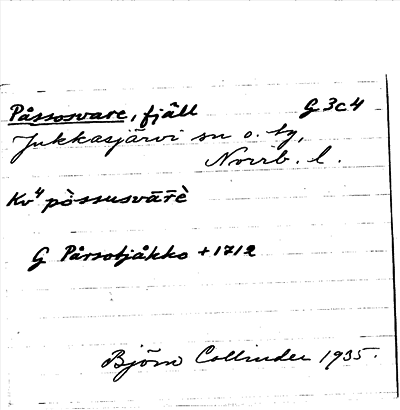 Påssosvare, fjäll G 3c4
Jukkasjärvi sn o. tg,
Norrb. l.
Kv⁴ pòssusvār̄è
G Pårsotjåkko +1712
Björn Collinder 1935.